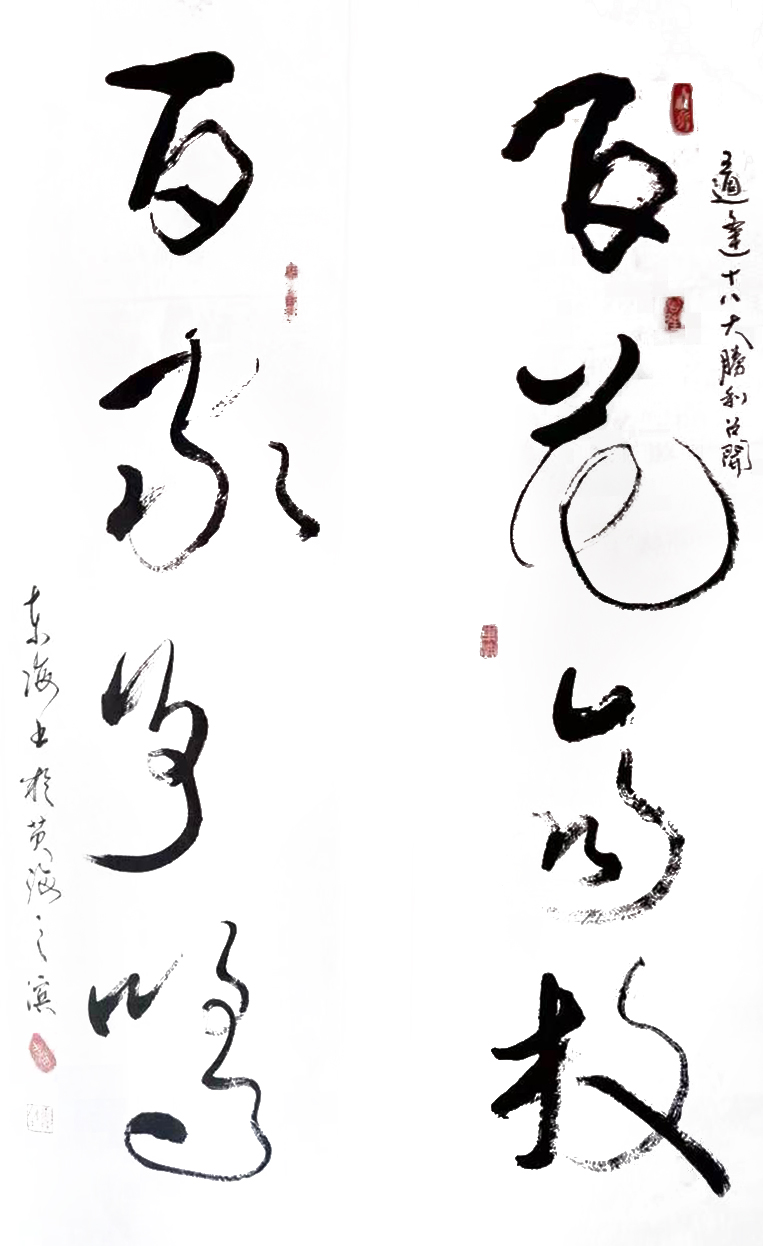 適逢十八大勝利召開
百花齐放
百家争鸣
东海书於黄海之滨